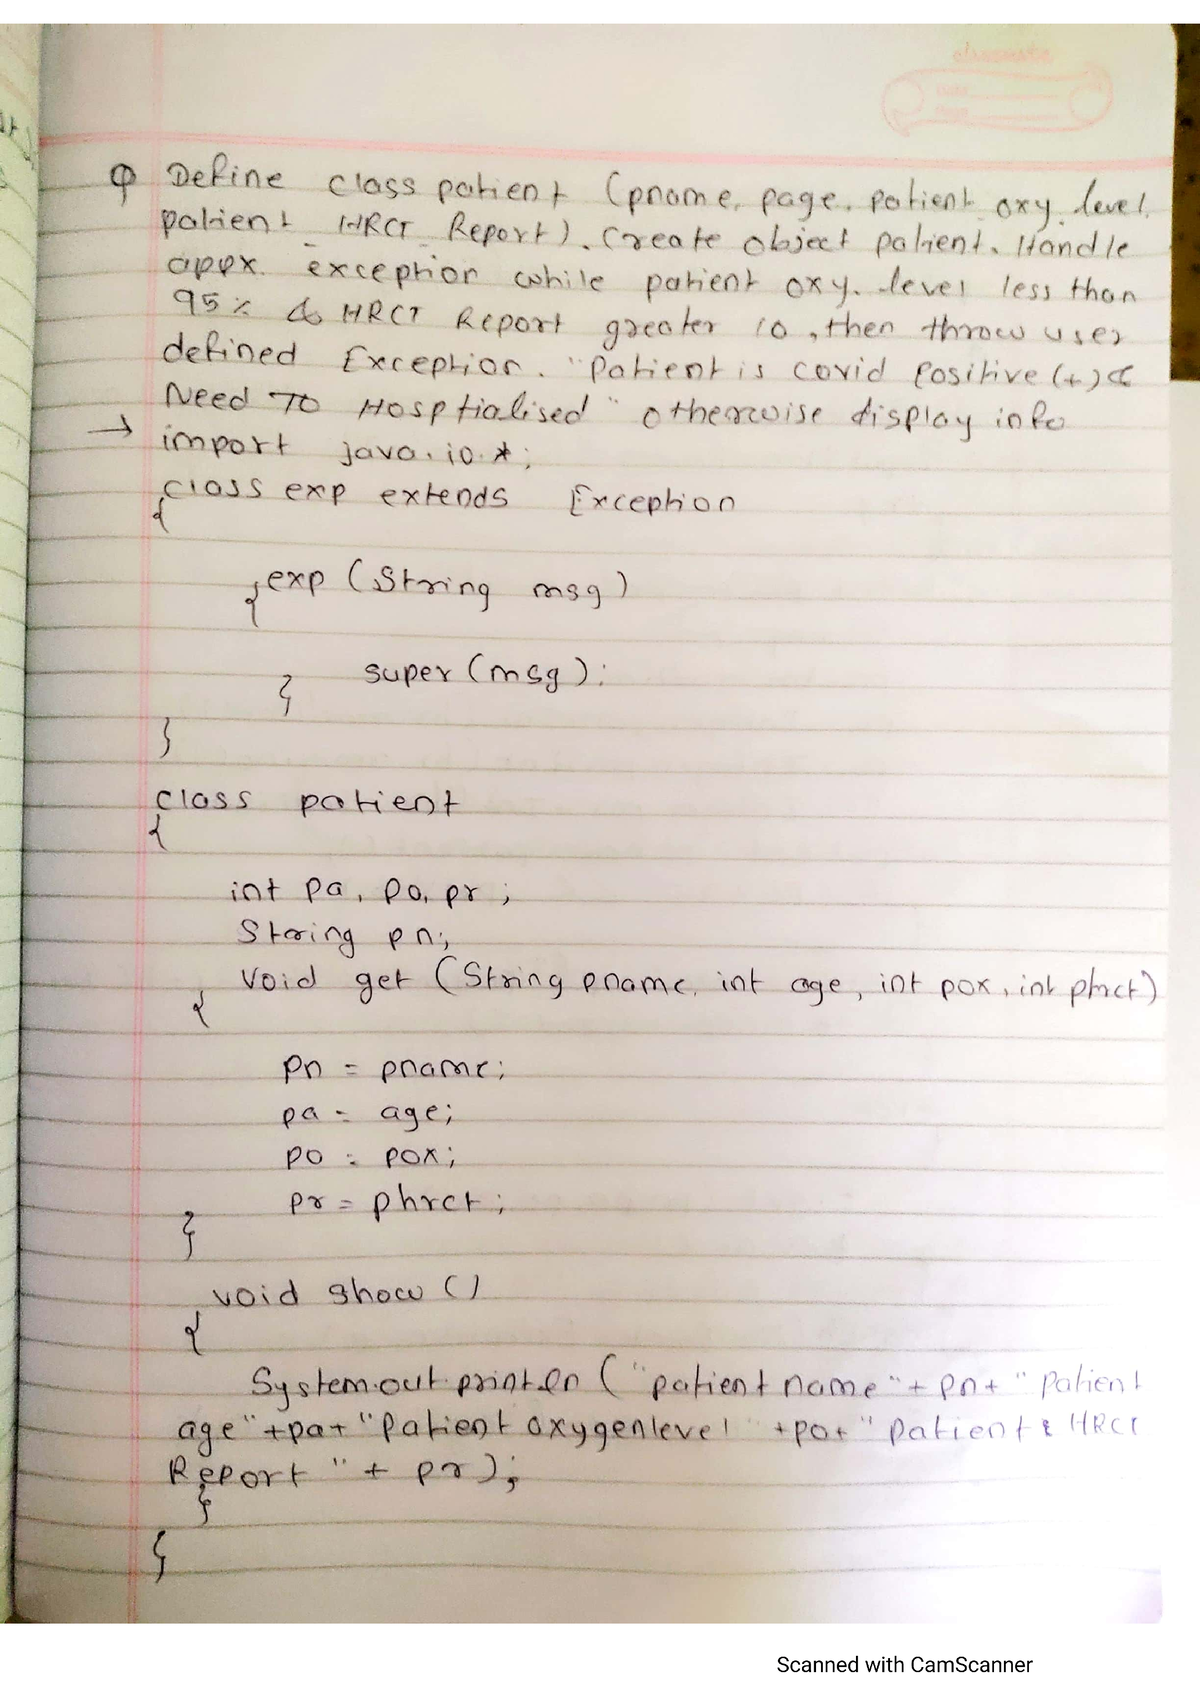 classmate
Date
Page
Q Define class patient (pname, page, patient_oxy_level,
patient_HRCT_Report). Create object patient. Handle
appx. exception while patient oxy. level less than
95% & HRCT Report greater 10, then throw user
defined Exception. "Patient is covid Positive (+) &
Need To Hosptialised" otherwise display info
→ import java.io.*;
class exp extends Exception
{
exp (String msg)
{
super (msg);
}
}
class patient
{
int pa, po, pr;
String pn;
void get (String pname, int age, int pox, int phrct)
{
pn = pname;
pa = age;
po = pox;
pr = phrct;
}
void show ()
{
System.out.println ("patient name "+ pn+ " patient
age" +pa+ "Patient oxygenlevel " +po+ " patient HRCT
Report " + pr);
}
}
Scanned with CamScanner